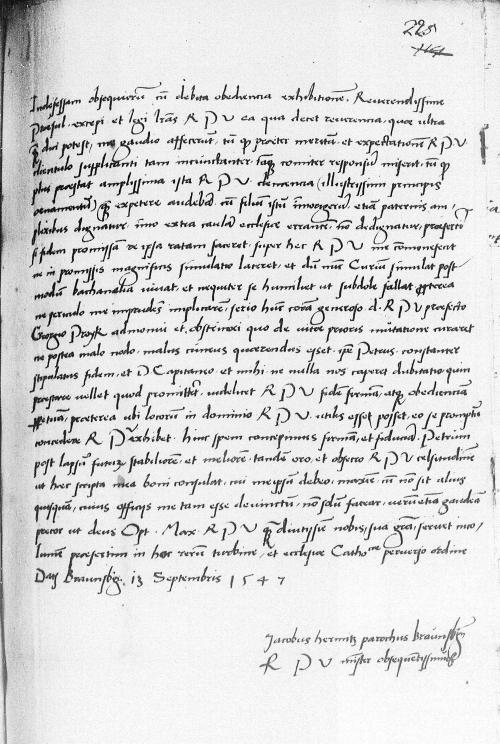 225
Indefessam obsequiorū cū debita obediencia exhibitionē. Reverendissime
Praesul. excepi et legi lras R P V ea qua decet reverencia, quae ultra
q̄ dici potest, mag gaudio affecerūt, tū q praeter meritū, et expectationē R P V
clientulo supplicanti tam incunctanter, tamq comiter responsū miserit, tū q
plus praestat amplissima ista R P V clemencia (illustrissimi principis
ornamentū) q̄ expetere audebā, cū filiū istū īmorigerū, etiā paternis am-
plexibus dignatur, īmo extra caulā ecclesiae errantē, nō dedignatur, praeserti
si fidem promissam re ipsa ratam faceret. super hec R P V me comonefecit
ne in promissis magnificis simulatio lateret, et dū nūc Curiū simulat post-
modū bachanalia vivat, et nequiter se humiliet ut subdole fallat. propterea
ne periculo me imprudens implicarē, serio hūc corā generoso d. R P V praefecto
Georgio Proyk admonui et, obstrinxi quo de vitae prioris mutatione curaret
ne postea malo nodo, malus cuneus quaerendus esset. ipse Petrus, constanter
stipulatus fidem, et D Capitaneo et mihi, ne nulla nos caperet dubitatio quin
praestare vellet quod promitteret, videlicet R P V fidē firmam, atq obedienciam
ppetuam, praeterea ubi locorum in dominio R P V. utilis esset posset, eo se promptū
concedere R P V exhibet. hinc spem concepimus firmam, et fiduciā, Petrum
post lapsū futurū stabiliorē, et meliorē. tandē oro, et obsecro R P V celsitudinē
ut hec scripta mea boni consulat, cui meipsū debeo, maxime, cū nō sit alius
quisquā, cuius officijs me tam esse devinctū, nō solū fatear, verū etiā gaudeā
precor ut deus Opt. Max. R P V q̄ diutissime nobis, sua gra, servet inco-
lumē praesertim in hoc rerū turbine, et ecclesiae Cathocae perverso ordine
Datȝ Braunsbg. 13 Septembris 1547
Jacobus hermitz parochus Braunsbgn
R P V mister obsequentissimus